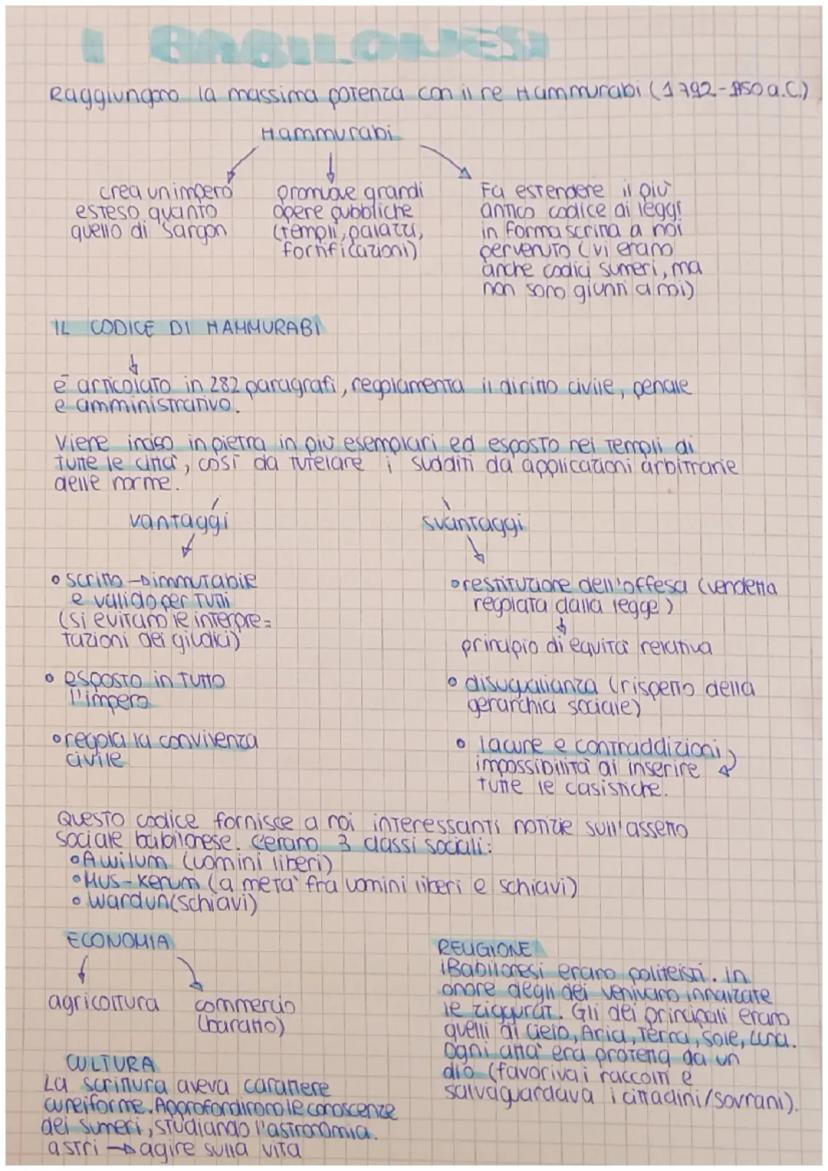 I BABILONESI
Raggiungono la massima potenza con il re Hammurabi (1792-1750 a.C.)
Hammurabi
crea un impero
esteso quanto
quello di Sargon
promuove grandi
opere pubbliche
(templi, palazzi,
fortificazioni)
Fa estendere il più
antico codice di leggi
in forma scritta a noi
pervenuto (vi erano
anche codici sumeri, ma
non sono giunti a noi)
IL CODICE DI HAMMURABI
è articolato in 282 paragrafi, regolamenta il diritto civile, penale
e amministrativo.
Viene inciso in pietra in più esemplari ed esposto nei templi di
tutte le città, così da tutelare i sudditi da applicazioni arbitrarie
delle norme.
vantaggi
• scritto → immutabile
e valido per tutti
(si evitano le interpre=
tazioni dei giudici)
• esposto in tutto
l'impero
• regola la convivenza
civile
svantaggi
• restituzione dell'offesa (vendetta
regolata dalla legge)
principio di equità relativa
• disuguaglianza (rispetto della
gerarchia sociale)
• lacune e contraddizioni
impossibilità di inserire
tutte le casistiche.
Questo codice fornisce a noi interessanti notizie sull'assetto
sociale babilonese. C'erano 3 classi sociali:
• Awilum (uomini liberi)
• Mus-kenum (a metà fra uomini liberi e schiavi)
• Wardun (schiavi)
ECONOMIA
agricoltura
commercio
(baratto)
CULTURA
La scrittura aveva carattere
cuneiforme. Approfondirono le conoscenze
dei sumeri, studiando l'astronomia.
astri → agire sulla vita
RELIGIONE
i Babilonesi erano politeisti. In
onore degli dei venivano innalzate
le ziggurat. Gli dei principali erano
quelli di Cielo, Aria, Terra, Sole, Luna.
Ogni città era protetta da un
dio (favoriva i raccolti e
salvaguardava i cittadini/sovrani).